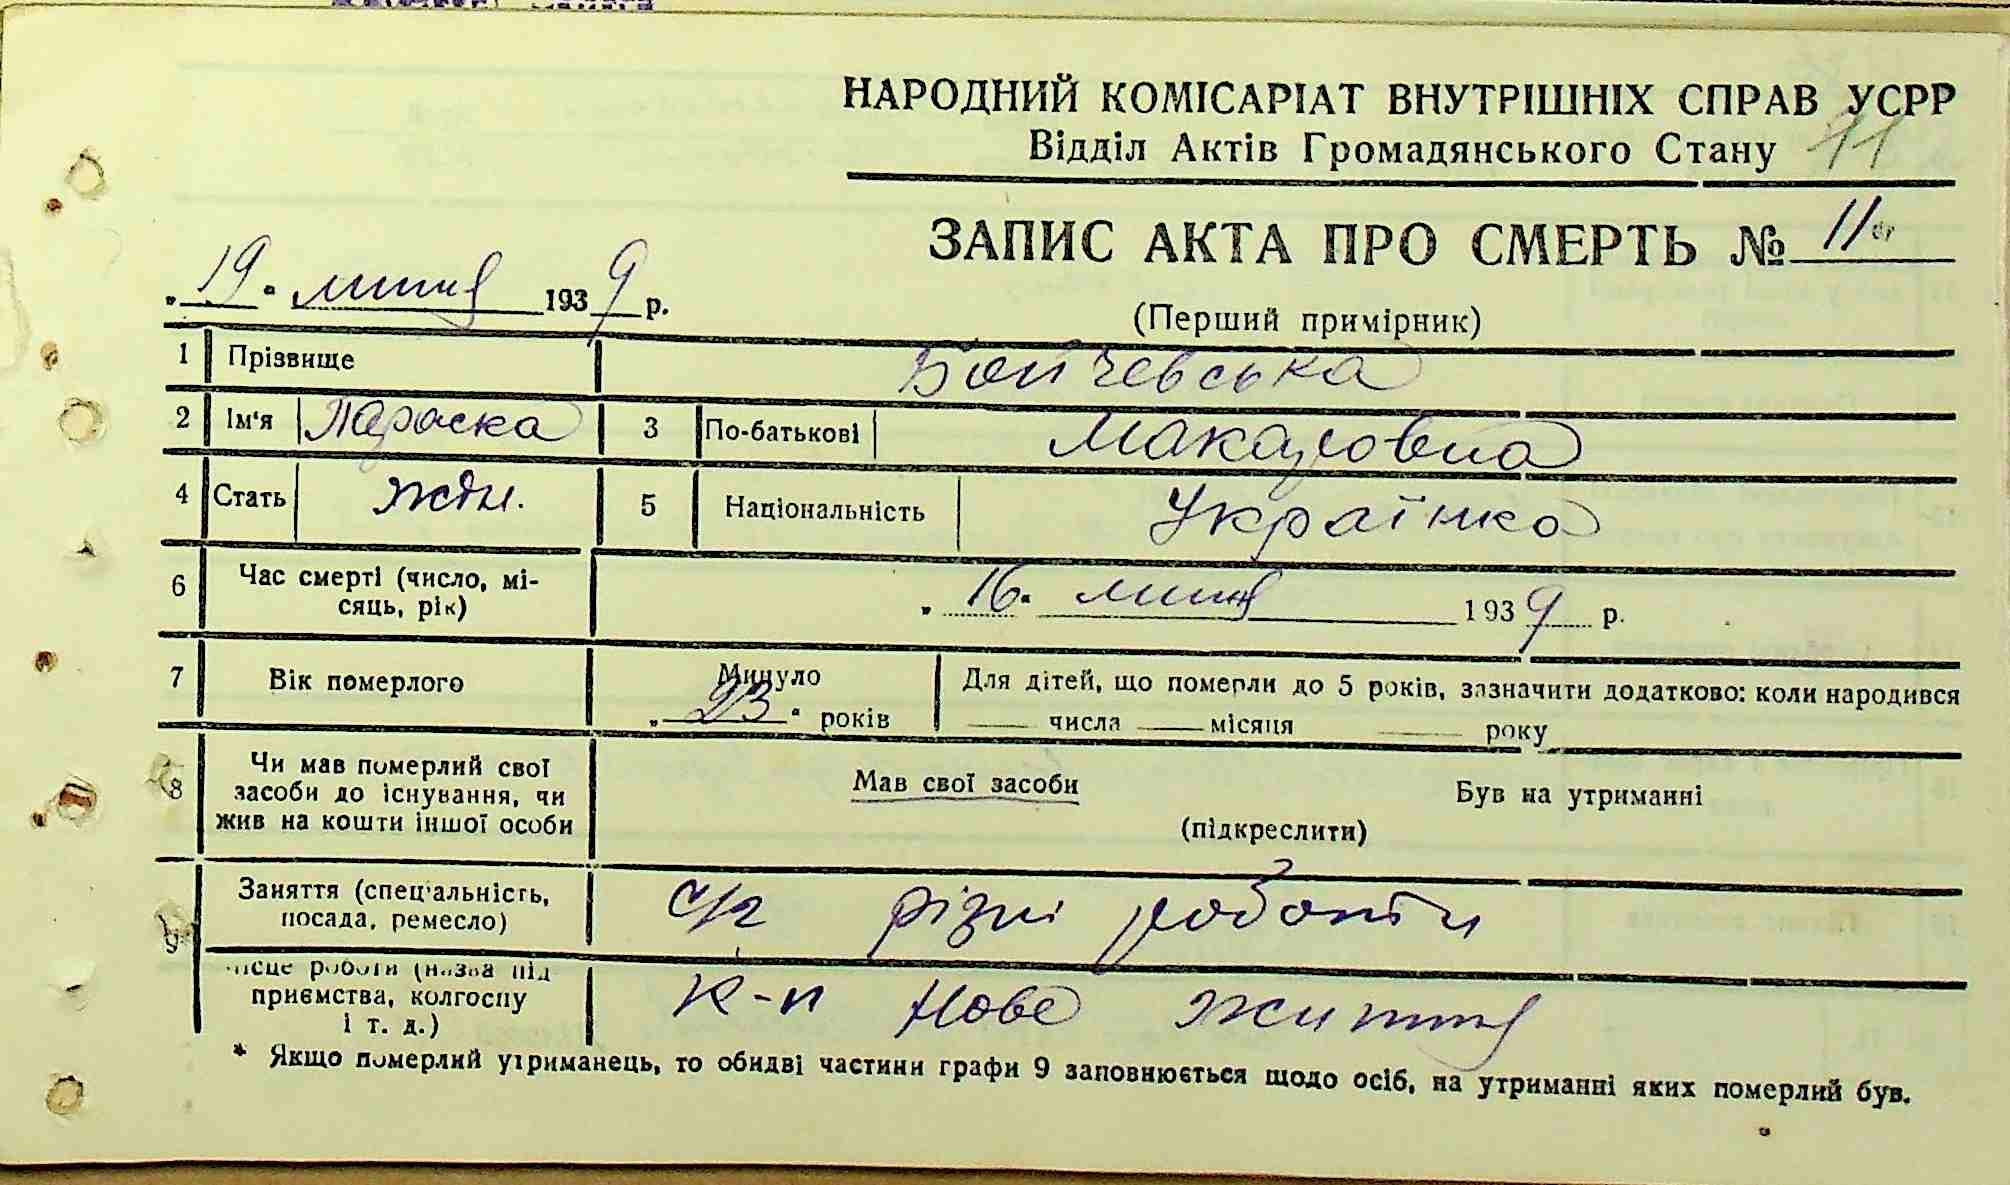 НАРОДНИЙ КОМІСАРІАТ ВНУТРІШНІХ СПРАВ УСРР
Відділ Актів Громадянського Стану 11
ЗАПИС АКТА ПРО СМЕРТЬ № 11
„19“ липня 1939 р.
(Перший примірник)
1 Прізвище Бойчевська
2 Ім'я Параска 3 По-батькові Макаровна
4 Стать жін. 5 Національність Українка
6 Час смерті (число, мі-
сяць, рік) „16“ липня 1939 р.
7 Вік померлого Минуло „23“ років Для дітей, що померли до 5 років, зазначити додатково: коли народився
числа місяця року
8 Чи мав померлий свої
засоби до існування, чи
жив на кошти іншої особи
Мав свої засоби Був на утриманні
(підкреслити)
9 Заняття (спеціальність,
посада, ремесло) с/г різні роботи
Місце роботи (назва під
приємства, колгоспу
і т. д.) к-п Нове життя
* Якщо померлий утриманець, то обидві частини графи 9 заповнюється щодо осіб, на утриманні яких померлий був.